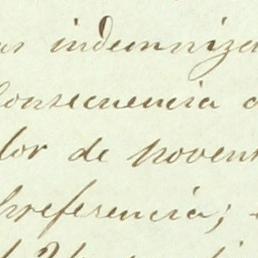 as indemniza
consecuencia
lor de novent
preferencia;